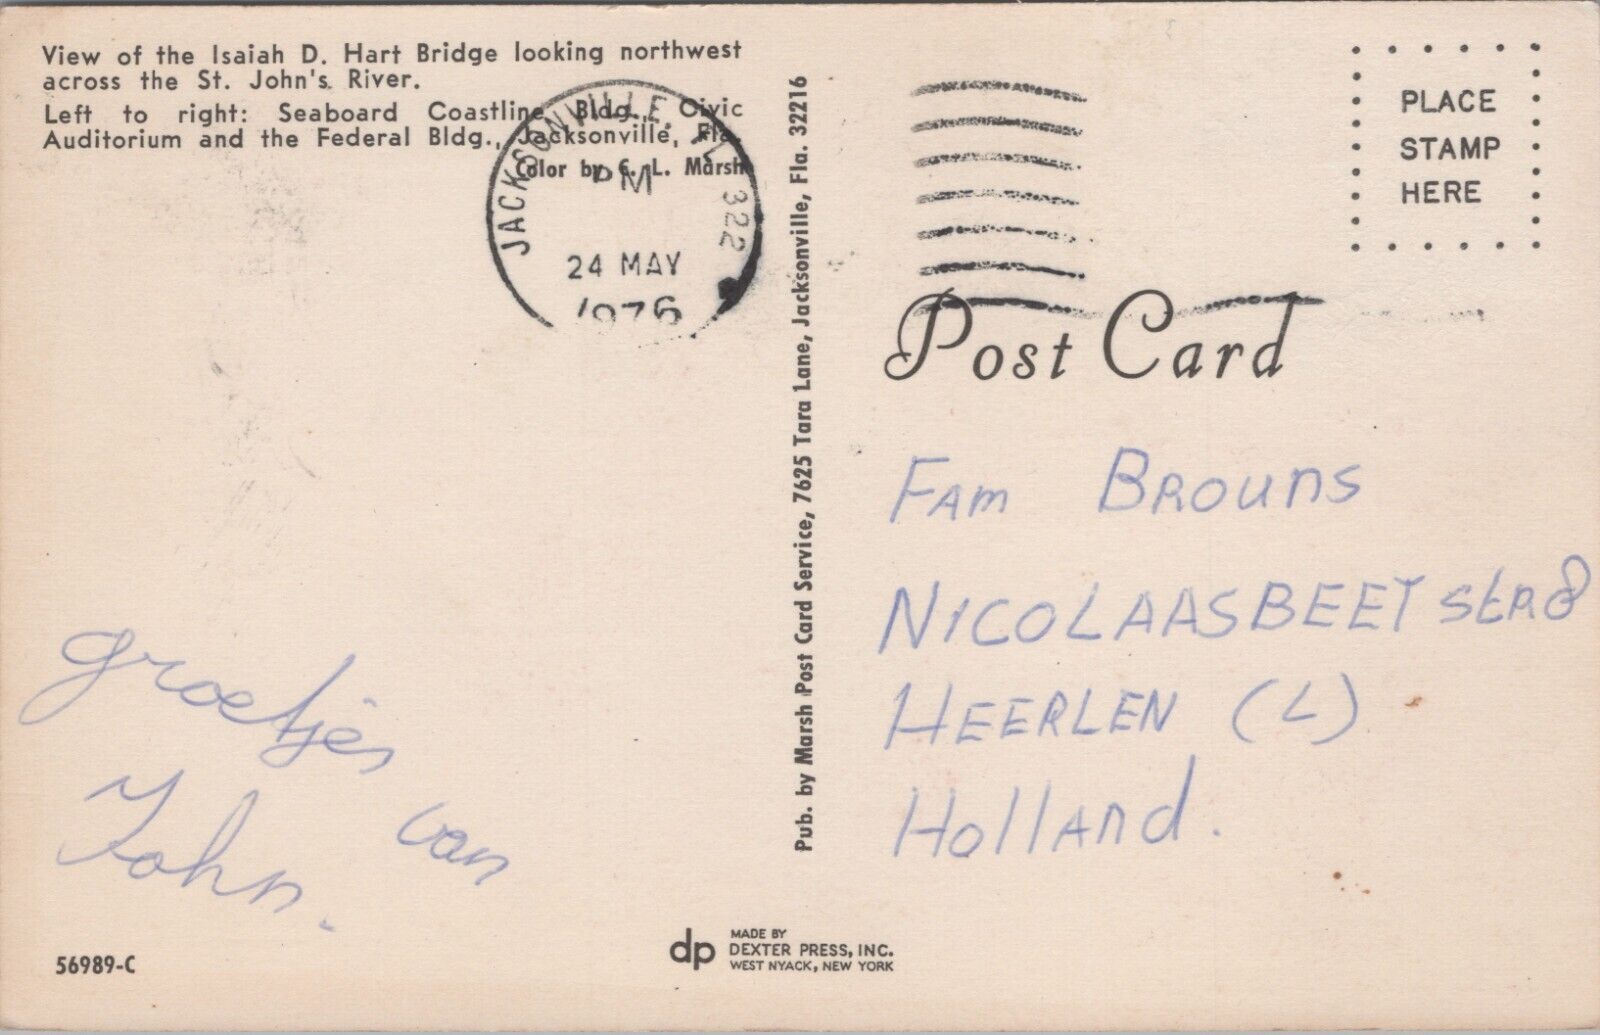 View of the Isaiah D. Hart Bridge looking northwest
across the St. John's River.
Left to right: Seaboard Coastline Bldg., Civic
Auditorium and the Federal Bldg., Jacksonville, Fla.
Color by C. L. Marsh
JACKSONVILLE, FL 322
PM
24 MAY
1976
groetjes
van
John.
56989-C
Pub. by Marsh Post Card Service, 7625 Tara Lane, Jacksonville, Fla. 32216
dp
MADE BY
DEXTER PRESS, INC.
WEST NYACK, NEW YORK
PLACE
STAMP
HERE
Post Card
Fam Brouns
NICOLAASBEETSstr 8
HEERLEN (L)
Holland.